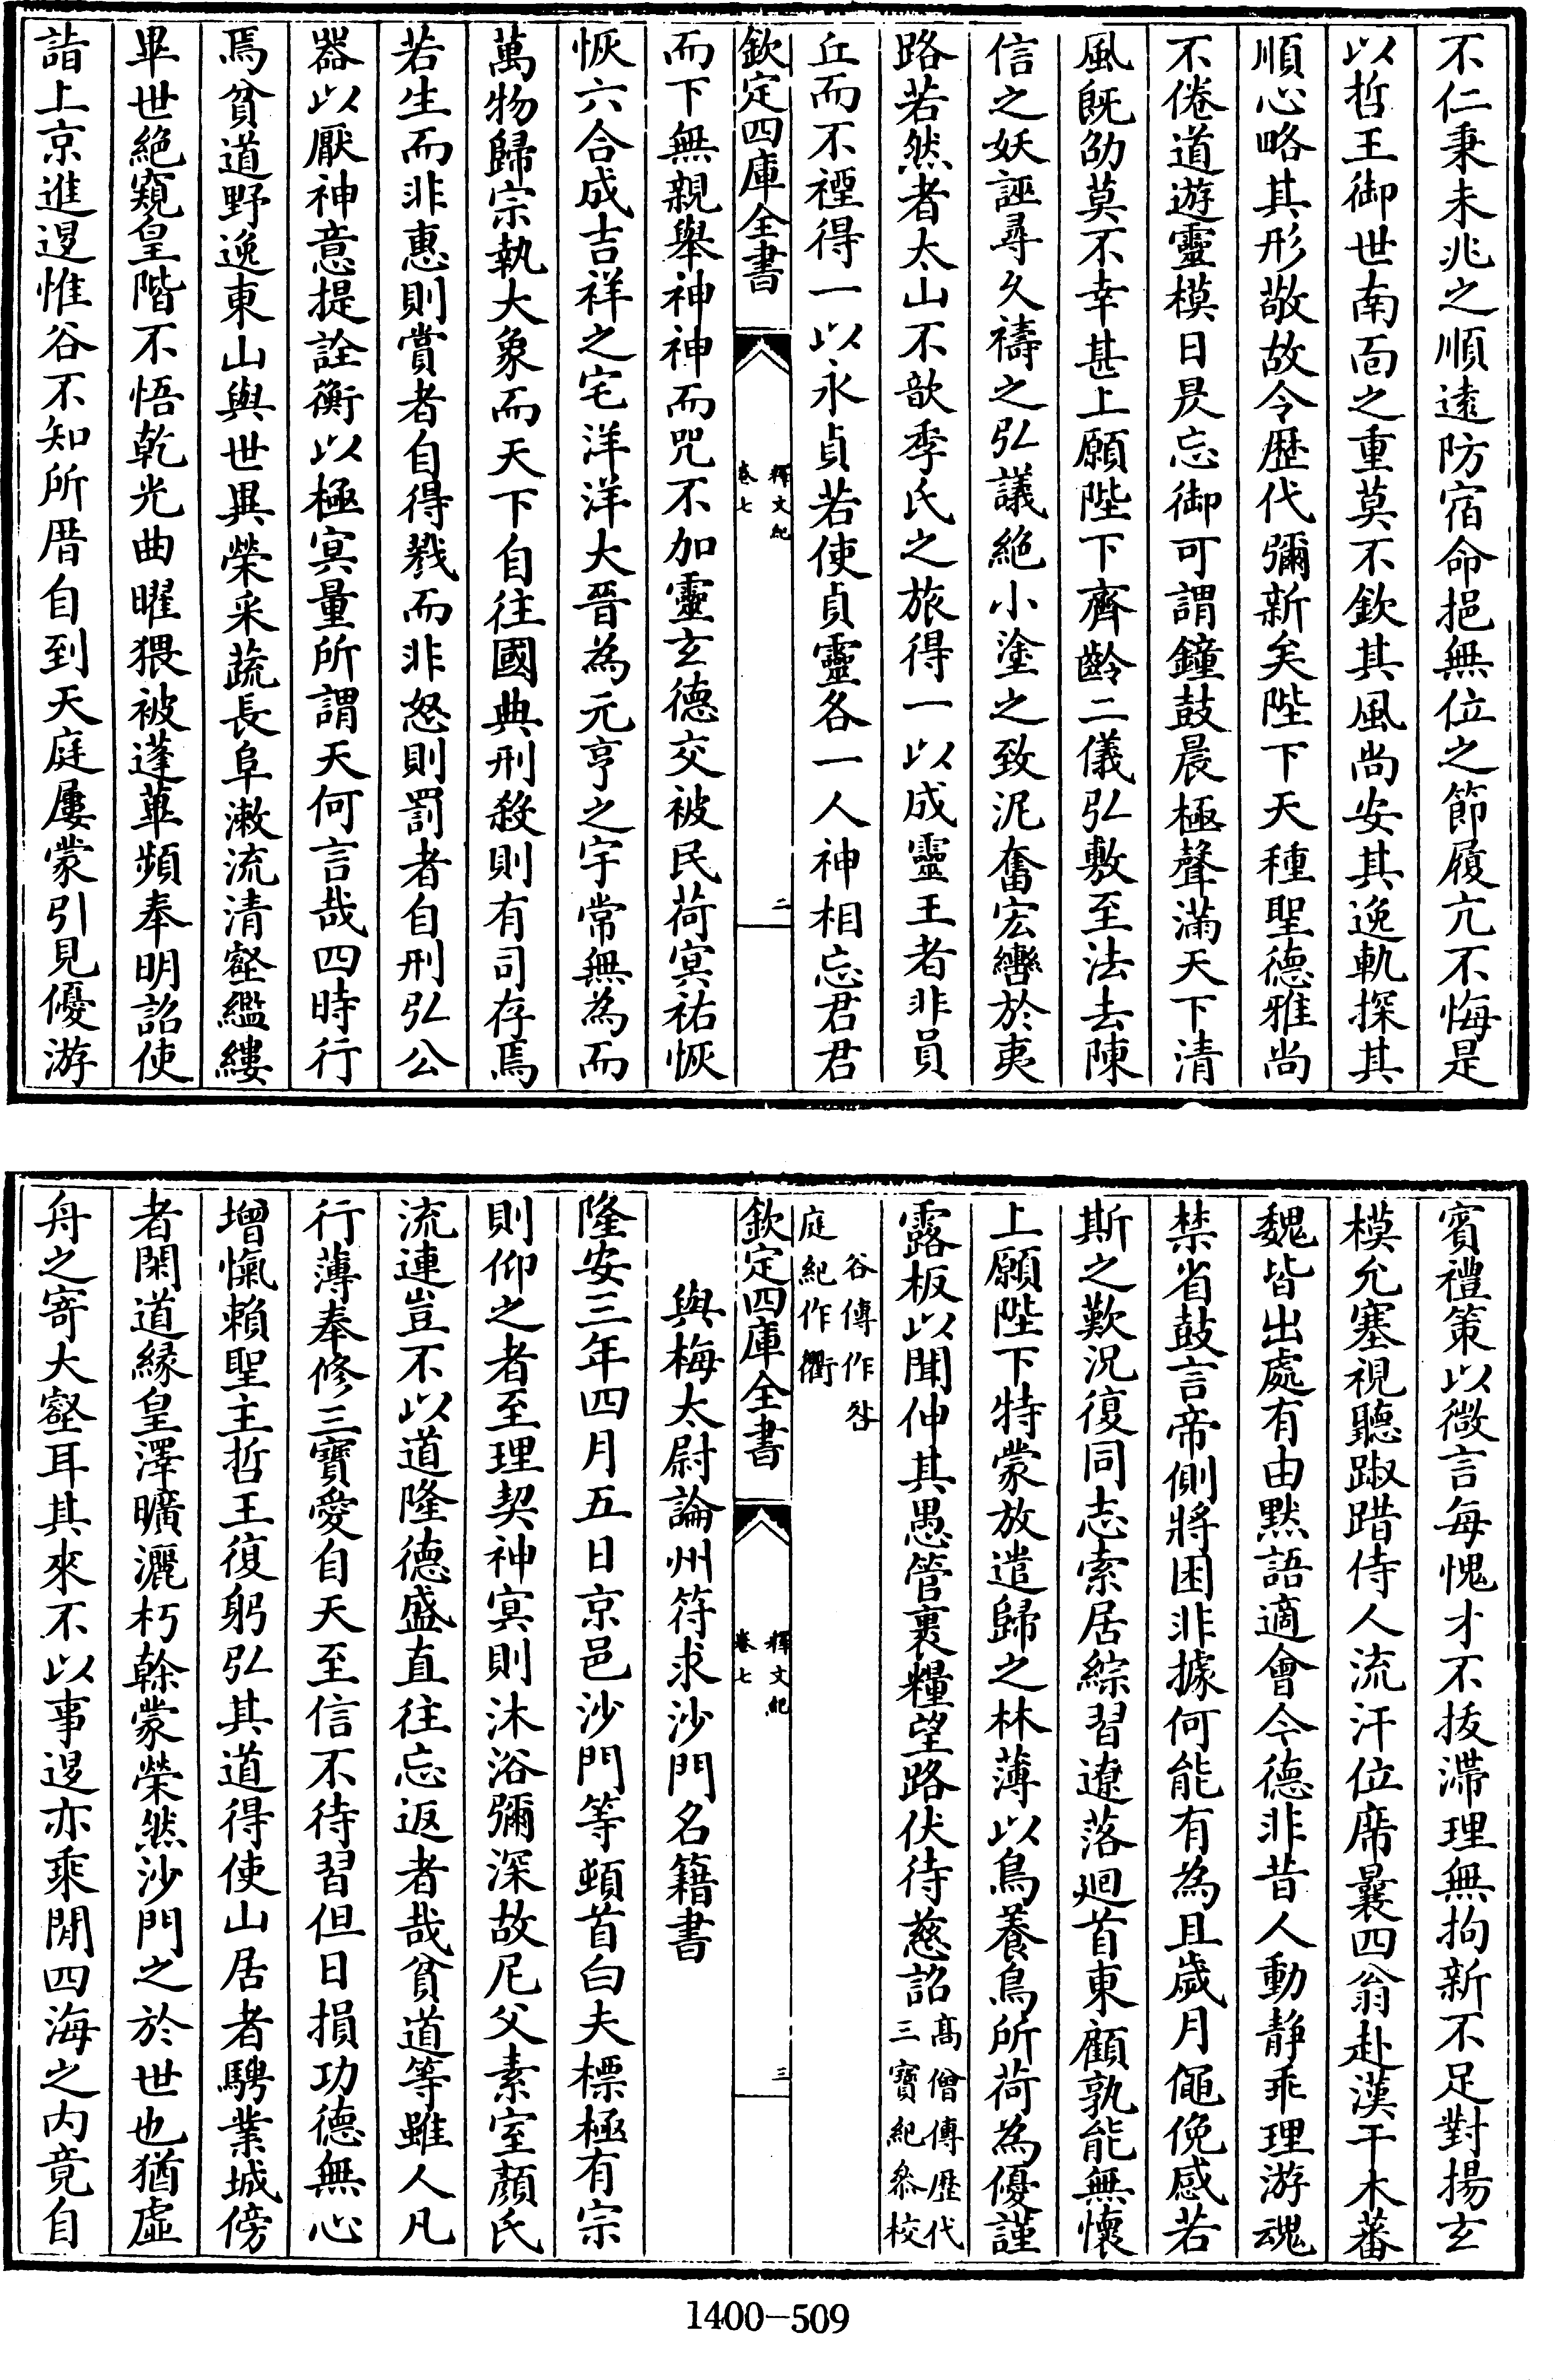 不仁秉未兆之順遠防宿命挹無位之節履亢不悔是
以哲王御世南面之重莫不欽其風尚安其逸軌探其
順心略其形敬故令歴代彌新矣陛下天種聖德雅尚
不倦道遊靈模日昃忘御可謂鐘鼓晨極聲滿天下清
風旣劭莫不幸甚上願陛下齊齡二儀弘敷至法去陳
信之妖誣尋久禱之弘議絶小塗之致泥奮宏轡於夷
路若然者太山不歆季氏之旅得一以成靈王者非員
丘而不禋得一以永貞若使貞靈各一人神相忘君君
欽定四庫全書
釋文紀
卷七
二
而下無親舉神神而咒不加靈玄德交被民荷冥祐恢
恢六合成吉祥之宅洋洋大晉為元亨之宇常無為而
萬物歸宗執大象而天下自往國典刑殺則有司存焉
若生而非惠則賞者自得戮而非怒則罰者自刑弘公
器以厭神意提詮衡以極冥量所謂天何言哉四時行
焉貧道野逸東山與世異榮采蔬長阜漱流清壑䌫縷
畢世絶窺皇階不悟乾光曲曜猥被蓬蓽頻奉明詔使
詣上京進退惟谷不知所厝自到天庭屢蒙引見優游
賓禮策以微言每愧才不拔滯理無拘新不足對揚玄
模允塞視聽踧踖侍人流汗位席曩四翁赴漢干木蕃
魏皆出處有由默語適會今德非昔人動静乖理游魂
禁省鼓言帝側將困非據何能有為且歲月僶俛感若
斯之歎況復同志索居綜習遼落迴首東顧孰能無懷
上願陛下特蒙放遣歸之林薄以鳥養鳥所荷為優謹
露板以聞仲其愚管裹糧望路伏待慈詔高僧傳歴代
三寶紀叅校
谷傳作咎
庭紀作衢
欽定四庫全書
釋文紀
卷七
三
與梅太尉論州符求沙門名籍書
隆安三年四月五日京邑沙門等頓首白夫標極有宗
則仰之者至理契神冥則沐浴彌深故尼父素室顔氏
流連豈不以道隆德盛直往忘返者哉貧道等雖人凡
行薄奉修三寶愛自天至信不待習但日損功德無心
增愾賴聖主哲王復躬弘其道得使山居者騁業城傍
者閑道緣皇澤曠灑朽榦蒙榮然沙門之於世也猶虛
舟之寄大壑耳其來不以事退亦乘閒四海之内竟自
1400-509